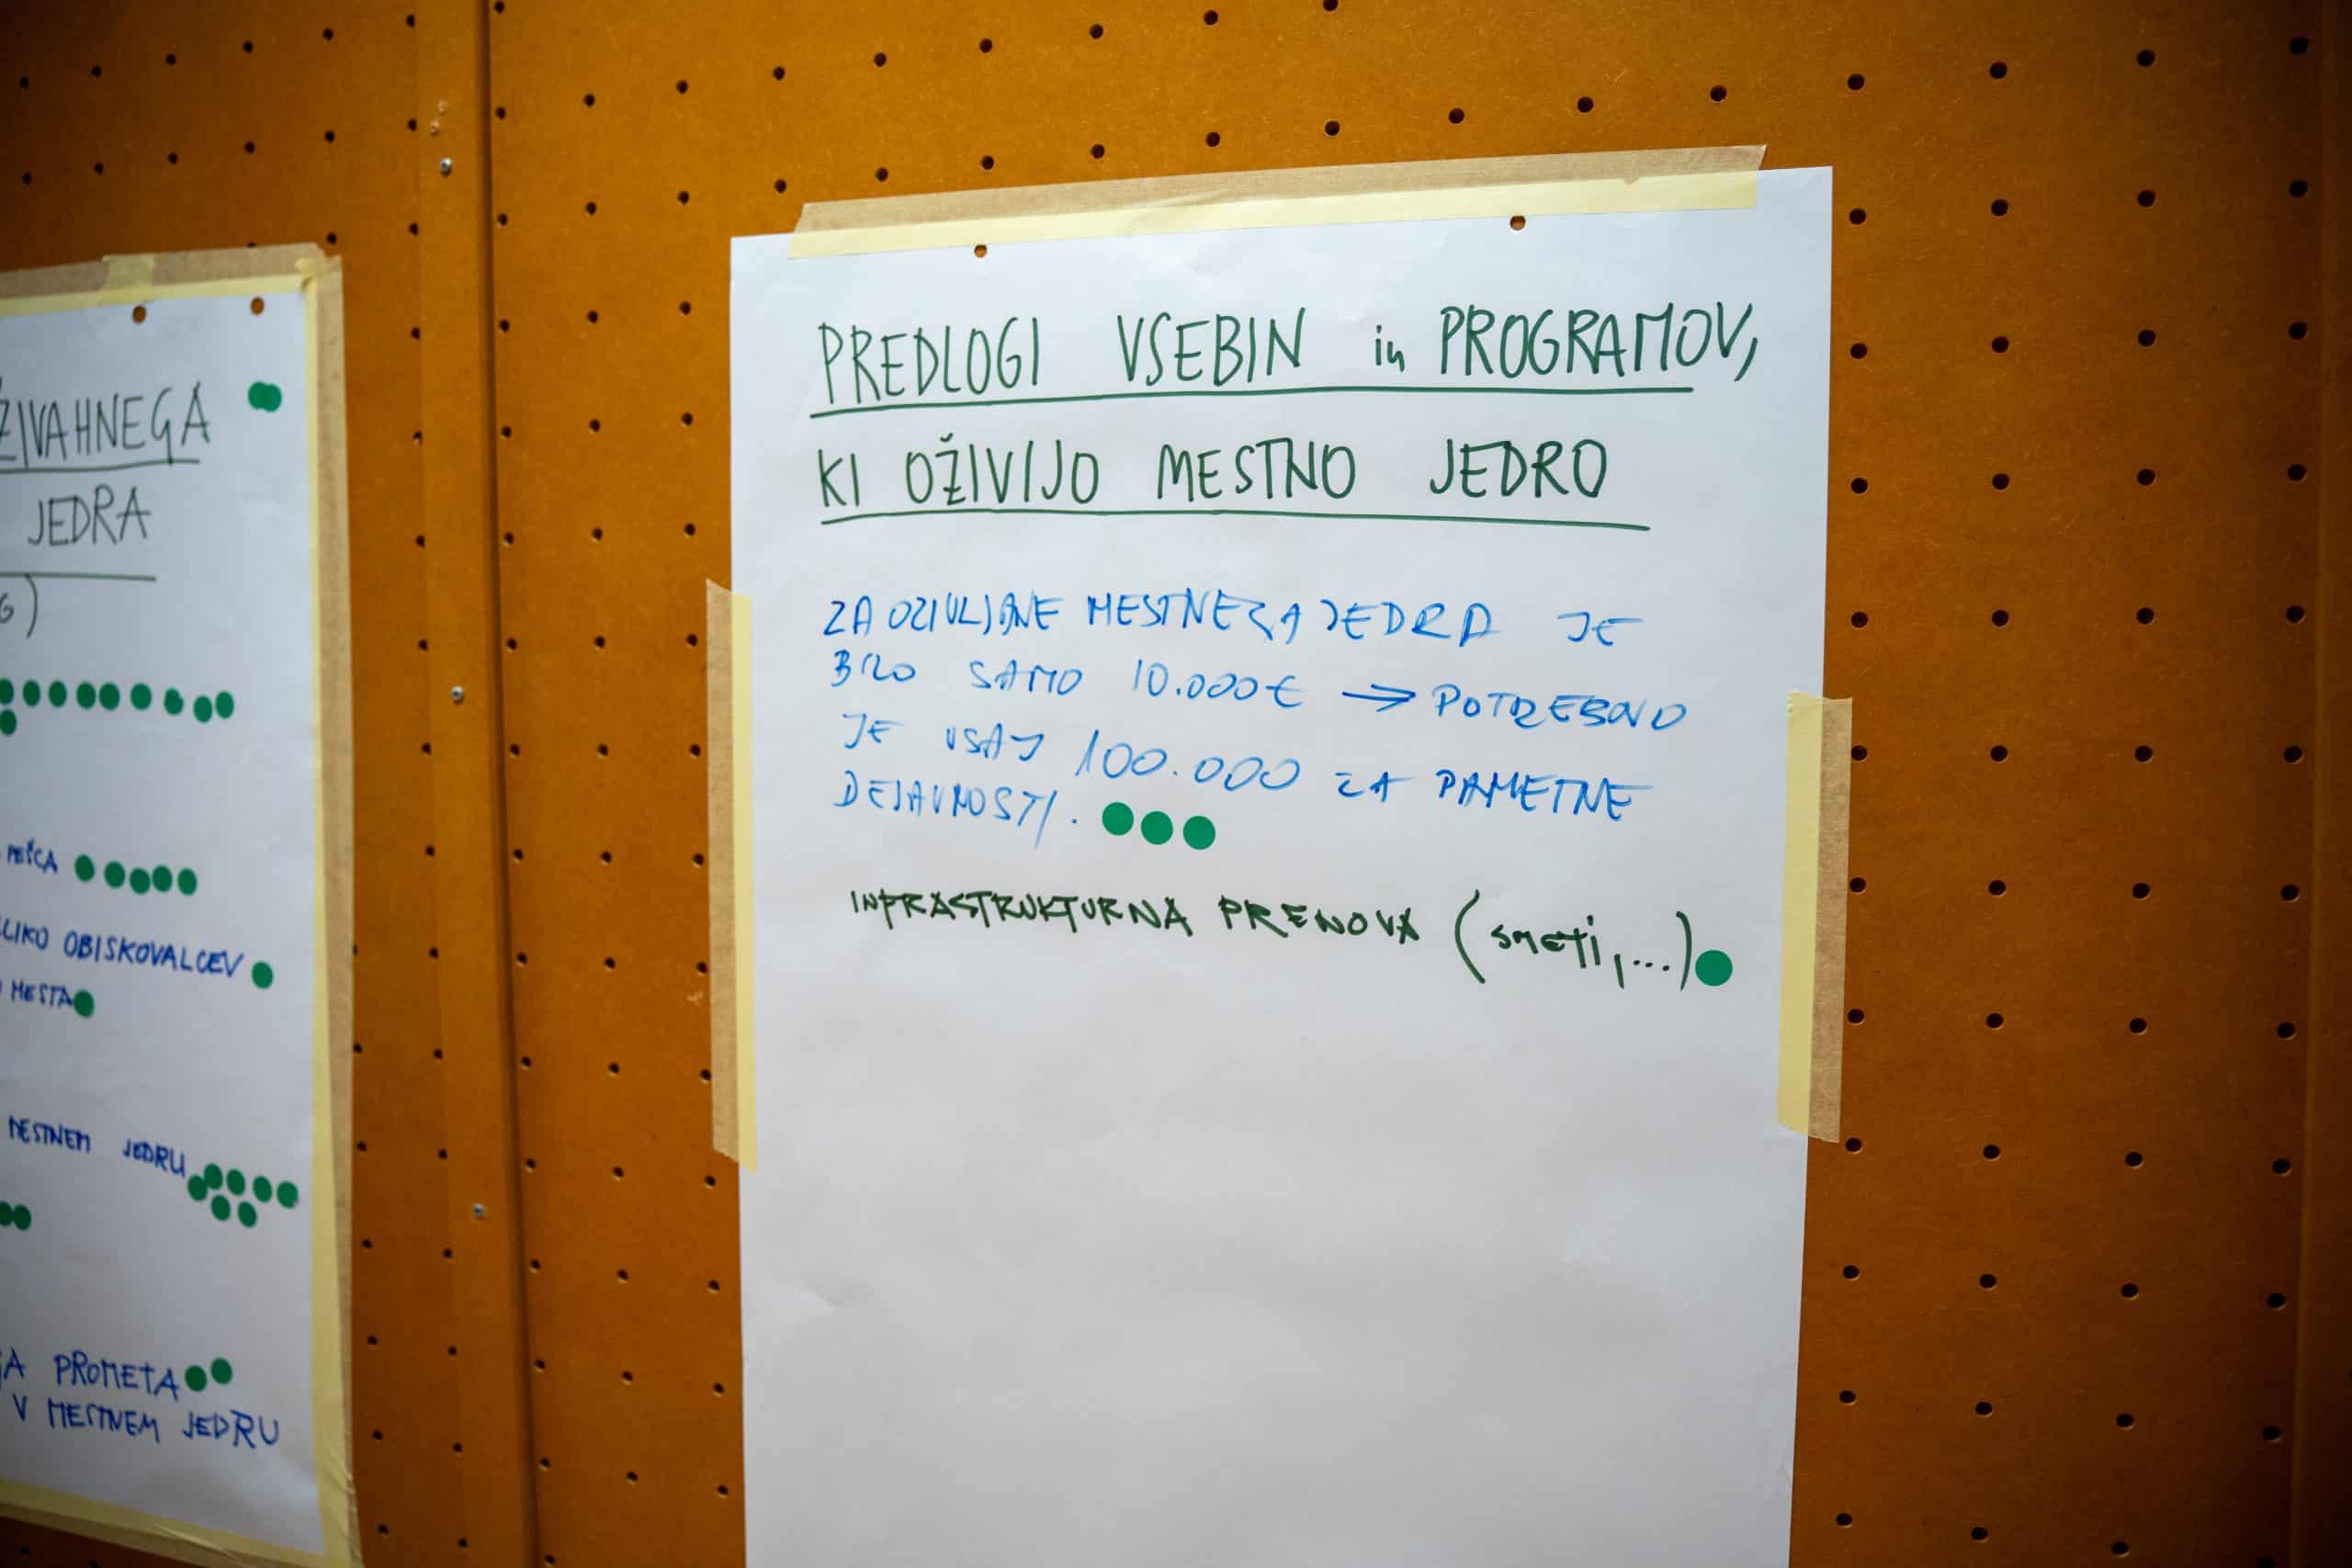 ŽIVAHNEGA
JEDRA
MESTA
LIKO OBISKOVALCEV
MESTNEM JEDRU
GA PROMETA
V MESTNEM JEDRU
PREDLOGI VSEBIN in PROGRAMOV,
KI OŽIVIJO MESTNO JEDRO
ZA OZIVLJANE MESTNEGA JEDRA JE
BILO SAMO 10.000€ → POTREBNO
JE VSAJ 100.000 ZA PAMETNE
DEJAVNOSTI.
INFRASTRUKTURNA PRENOVA (smeti,...)